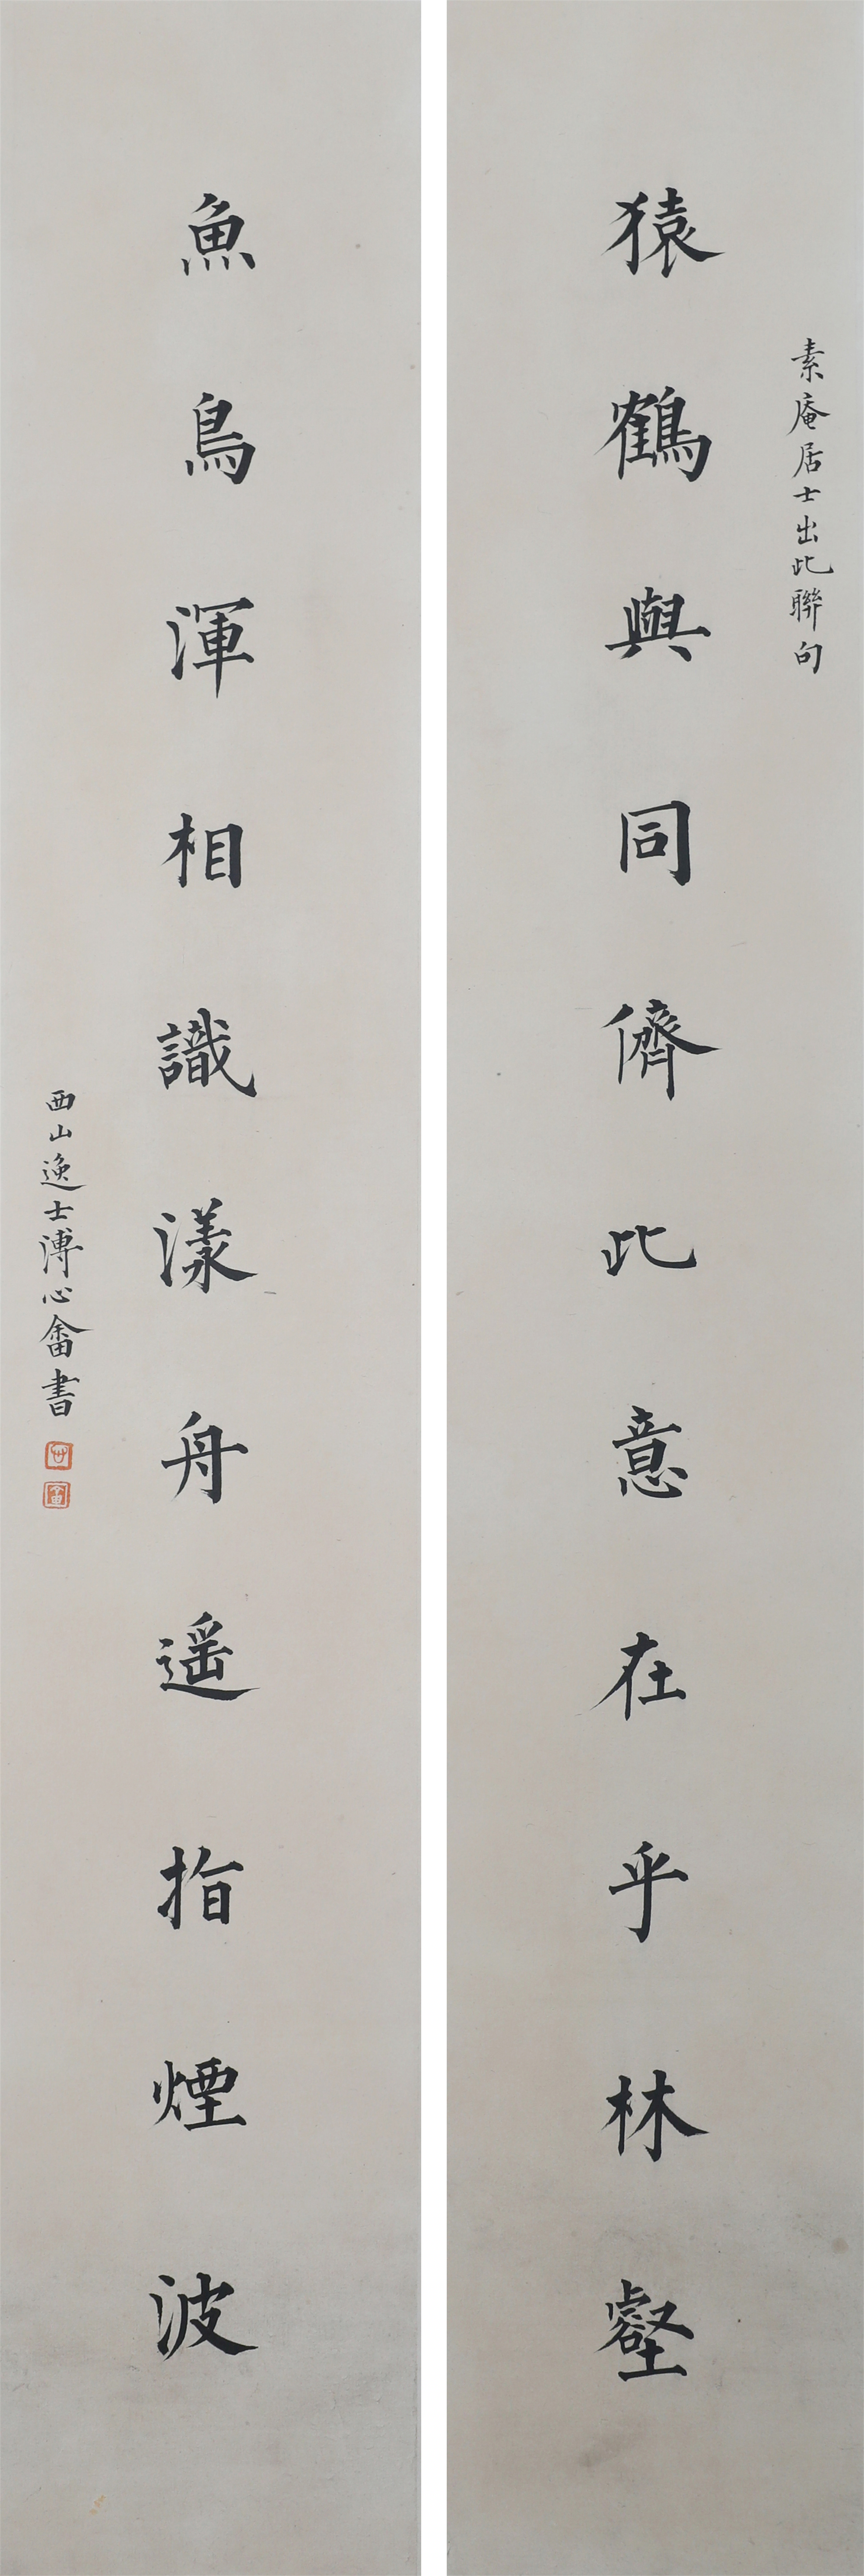 素庵居士出此聯句
猿鶴與同儕此意在乎林壑
魚鳥渾相識漾舟遥指煙波
西山逸士溥心畬書